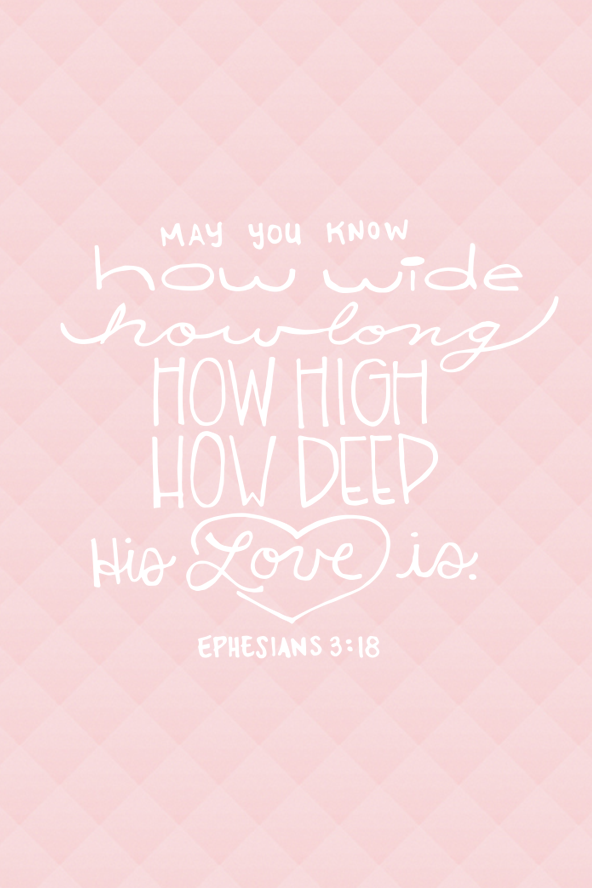 MAY YOU KNOW
how wide
how long
HOW HIGH
HOW DEEP
His Love is.
EPHESIANS 3:18